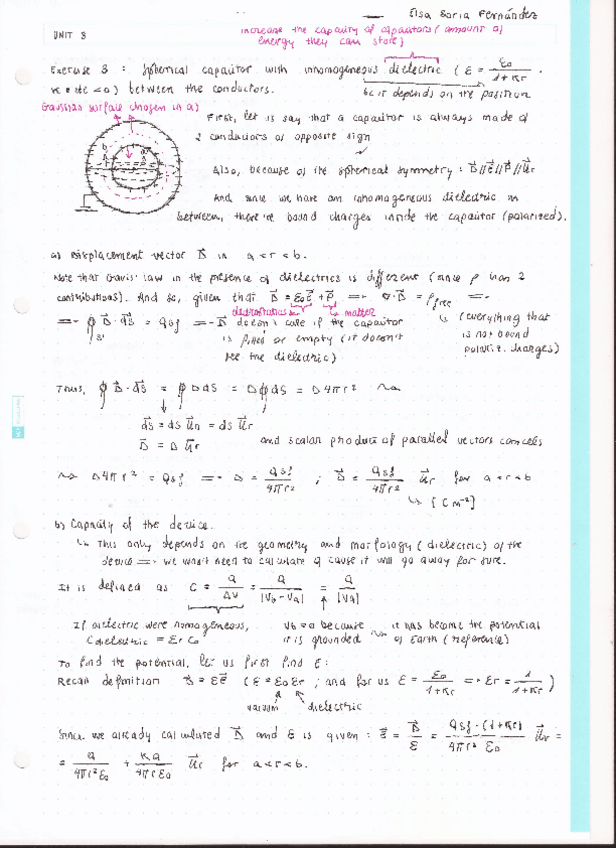 Elsa Soria Fernández
UNIT 3
increase the capacity of capacitors (amount of
energy they can store)
Exercise 3 : Spherical capacitor with inhomogeneous dielectric (ε = ε₀/(1+Kr) .
K = cte < 0) between the conductors.
bc it depends on the position
Gaussian surface chosen in a)
First, let is say that a capacitor is always made of
2 conductors of opposite sign
Also, because of the spherical symmetry : D⃗∥E⃗∥P⃗∥u⃗r
And since we have an inhomogeneous dielectric in
between, there're bound charges inside the capacitor (polarized).
a) Displacement vector D⃗ in a<r<b.
Note that Gauss' law in the presence of dielectrics is different (since ρ has 2
contributions). And so, given that D⃗ = ε₀E⃗ + P⃗ => ∇·D⃗ = ρfree =>
electrostatics matter
=> ∯ D⃗·dS⃗ = Qsf => D⃗ doesn't care if the capacitor
is filled or empty (it doesn't
see the dielectric)
(everything that
is not bound
polariz. charges)
Thus, ∯ D⃗·dS⃗ = ∯ D dS = D∯dS = D4πr²
dS⃗ = dS u⃗n = dS u⃗r
D⃗ = D u⃗r and scalar product of parallel vectors cancels
D4πr² = Qsf => D = Qsf/4πr² ; D⃗ = Qsf/4πr² u⃗r for a<r<b
[C m⁻²]
b) Capacity of the device.
This only depends on the geometry and morfology (dielectric) of the
device => we won't need to calculate Q cause it will go away for sure.
It is defined as C = Q/ΔV = Q/|Vb-Va| = Q/|Va|
If dielectric were homogeneous, Vb=0 because it has become the potential
Cdielectric = εr C₀ it is grounded of Earth (reference)
To find the potential, let us first find E:
Recall definition D⃗ = εE⃗ (ε = ε₀εr ; and for us ε = ε₀/(1+Kr) => εr = 1/(1+Kr))
vacuum dielectric
Since we already calculated D⃗ and ε is given : E⃗ = D⃗/ε = Qsf·(1+Kr)/4πr² ε₀ u⃗r =
= Q/4πr²ε₀ + KQ/4πrε₀ u⃗r for a<r<b.